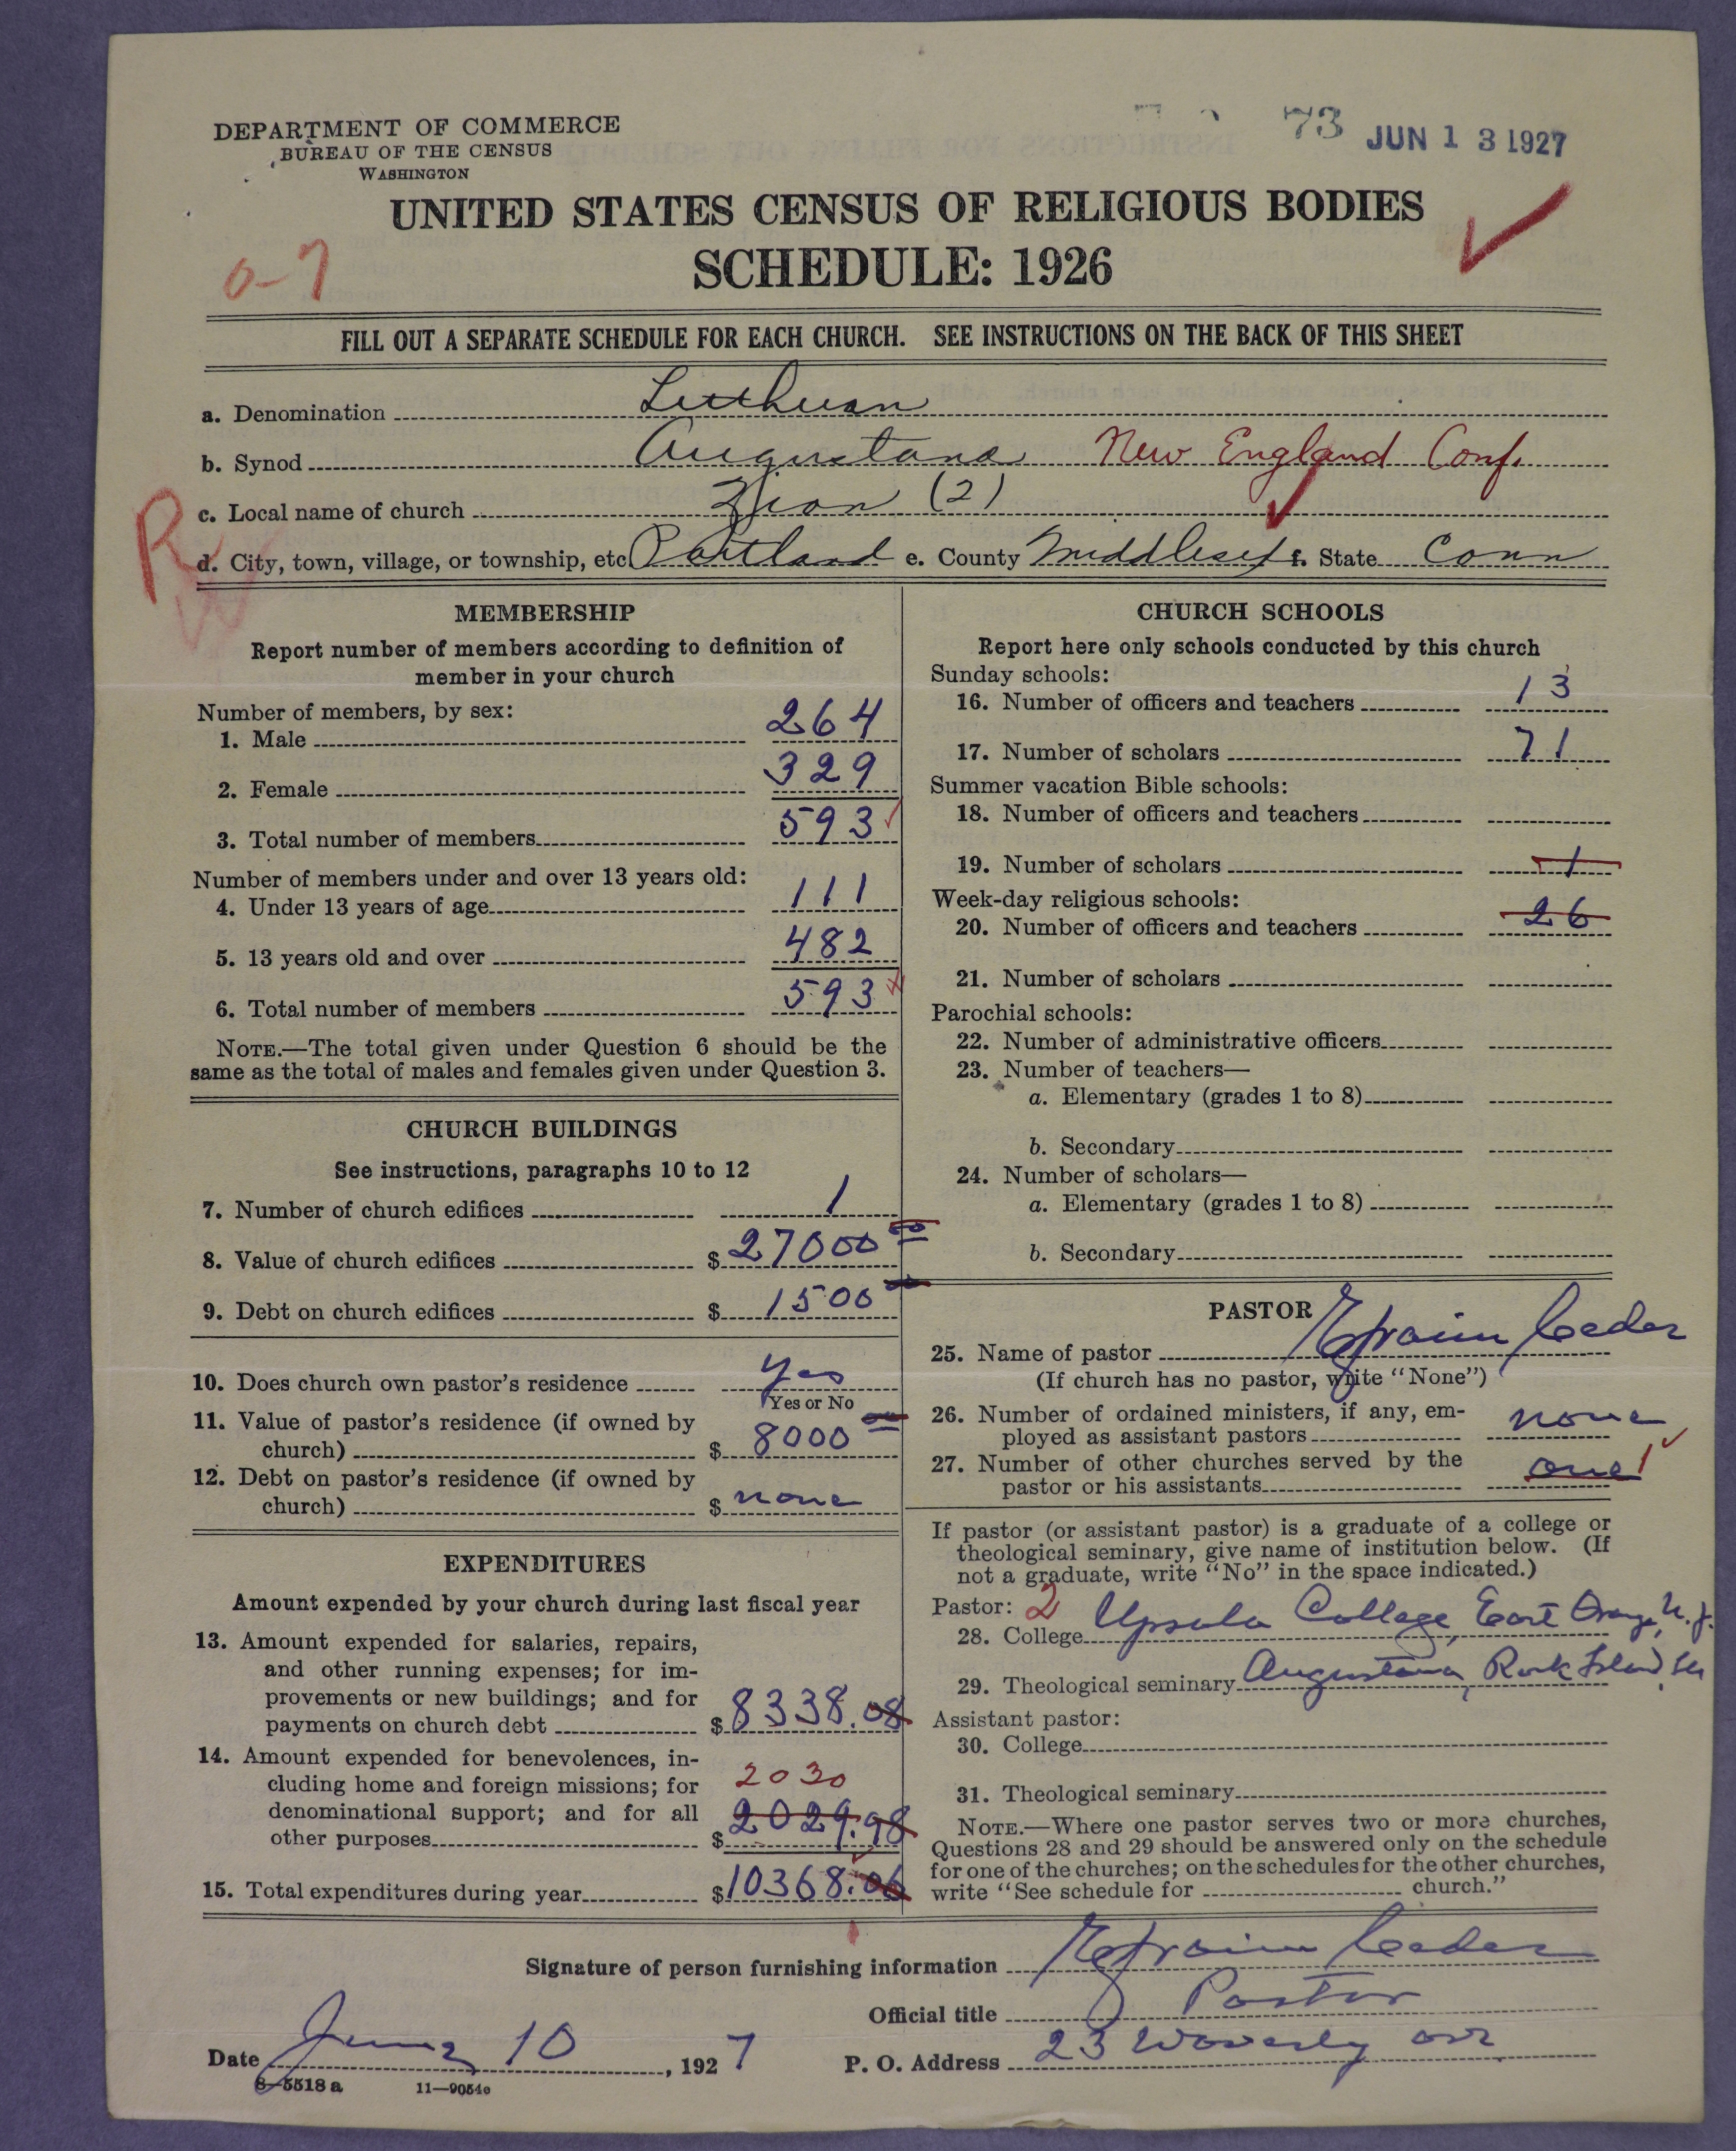 73 JUN 13 1927
DEPARTMENT OF COMMERCE
BUREAU OF THE CENSUS
WASHINGTON
UNITED STATES CENSUS OF RELIGIOUS BODIES
SCHEDULE: 1926
0-7
FILL OUT A SEPARATE SCHEDULE FOR EACH CHURCH. SEE INSTRUCTIONS ON THE BACK OF THIS SHEET
a. Denomination Lutheran
b. Synod Augustana New England Conf.
c. Local name of church Zion (2)
R
d. City, town, village, or township, etc Portland e. County Middlesex f. State Conn
MEMBERSHIP
Report number of members according to definition of
member in your church
Number of members, by sex:
1. Male 264
2. Female 329
3. Total number of members 593
Number of members under and over 13 years old:
4. Under 13 years of age 111
5. 13 years old and over 482
6. Total number of members 593
NOTE.—The total given under Question 6 should be the
same as the total of males and females given under Question 3.
CHURCH BUILDINGS
See instructions, paragraphs 10 to 12
7. Number of church edifices 1
8. Value of church edifices $ 27000 00
9. Debt on church edifices $ 1500
10. Does church own pastor's residence Yes
Yes or No
11. Value of pastor's residence (if owned by
church) $ 8000
12. Debt on pastor's residence (if owned by
church) $ none
EXPENDITURES
Amount expended by your church during last fiscal year
13. Amount expended for salaries, repairs,
and other running expenses; for im-
provements or new buildings; and for
payments on church debt $ 8338.08
14. Amount expended for benevolences, in-
cluding home and foreign missions; for 2030
denominational support; and for all 2029.98
other purposes $
15. Total expenditures during year $ 10368.06
CHURCH SCHOOLS
Report here only schools conducted by this church
Sunday schools:
16. Number of officers and teachers 13
17. Number of scholars 71
Summer vacation Bible schools:
18. Number of officers and teachers
19. Number of scholars 1
Week-day religious schools:
20. Number of officers and teachers 26
21. Number of scholars
Parochial schools:
22. Number of administrative officers
23. Number of teachers—
a. Elementary (grades 1 to 8)
b. Secondary
24. Number of scholars—
a. Elementary (grades 1 to 8)
b. Secondary
PASTOR
25. Name of pastor Efraim Ceder
(If church has no pastor, write "None")
26. Number of ordained ministers, if any, em-
ployed as assistant pastors none
27. Number of other churches served by the
pastor or his assistants one 1
If pastor (or assistant pastor) is a graduate of a college or
theological seminary, give name of institution below. (If
not a graduate, write "No" in the space indicated.)
Pastor: 2
28. College Upsala College, East Orange, N.J.
29. Theological seminary Augustana, Rock Island, Ill
Assistant pastor:
30. College
31. Theological seminary
NOTE.—Where one pastor serves two or more churches,
Questions 28 and 29 should be answered only on the schedule
for one of the churches; on the schedules for the other churches,
write "See schedule for church."
Signature of person furnishing information Efraim Ceder
Official title Pastor
Date June 10, 1927 P. O. Address 23 Waverly ave
8—5518 a 11—9054e